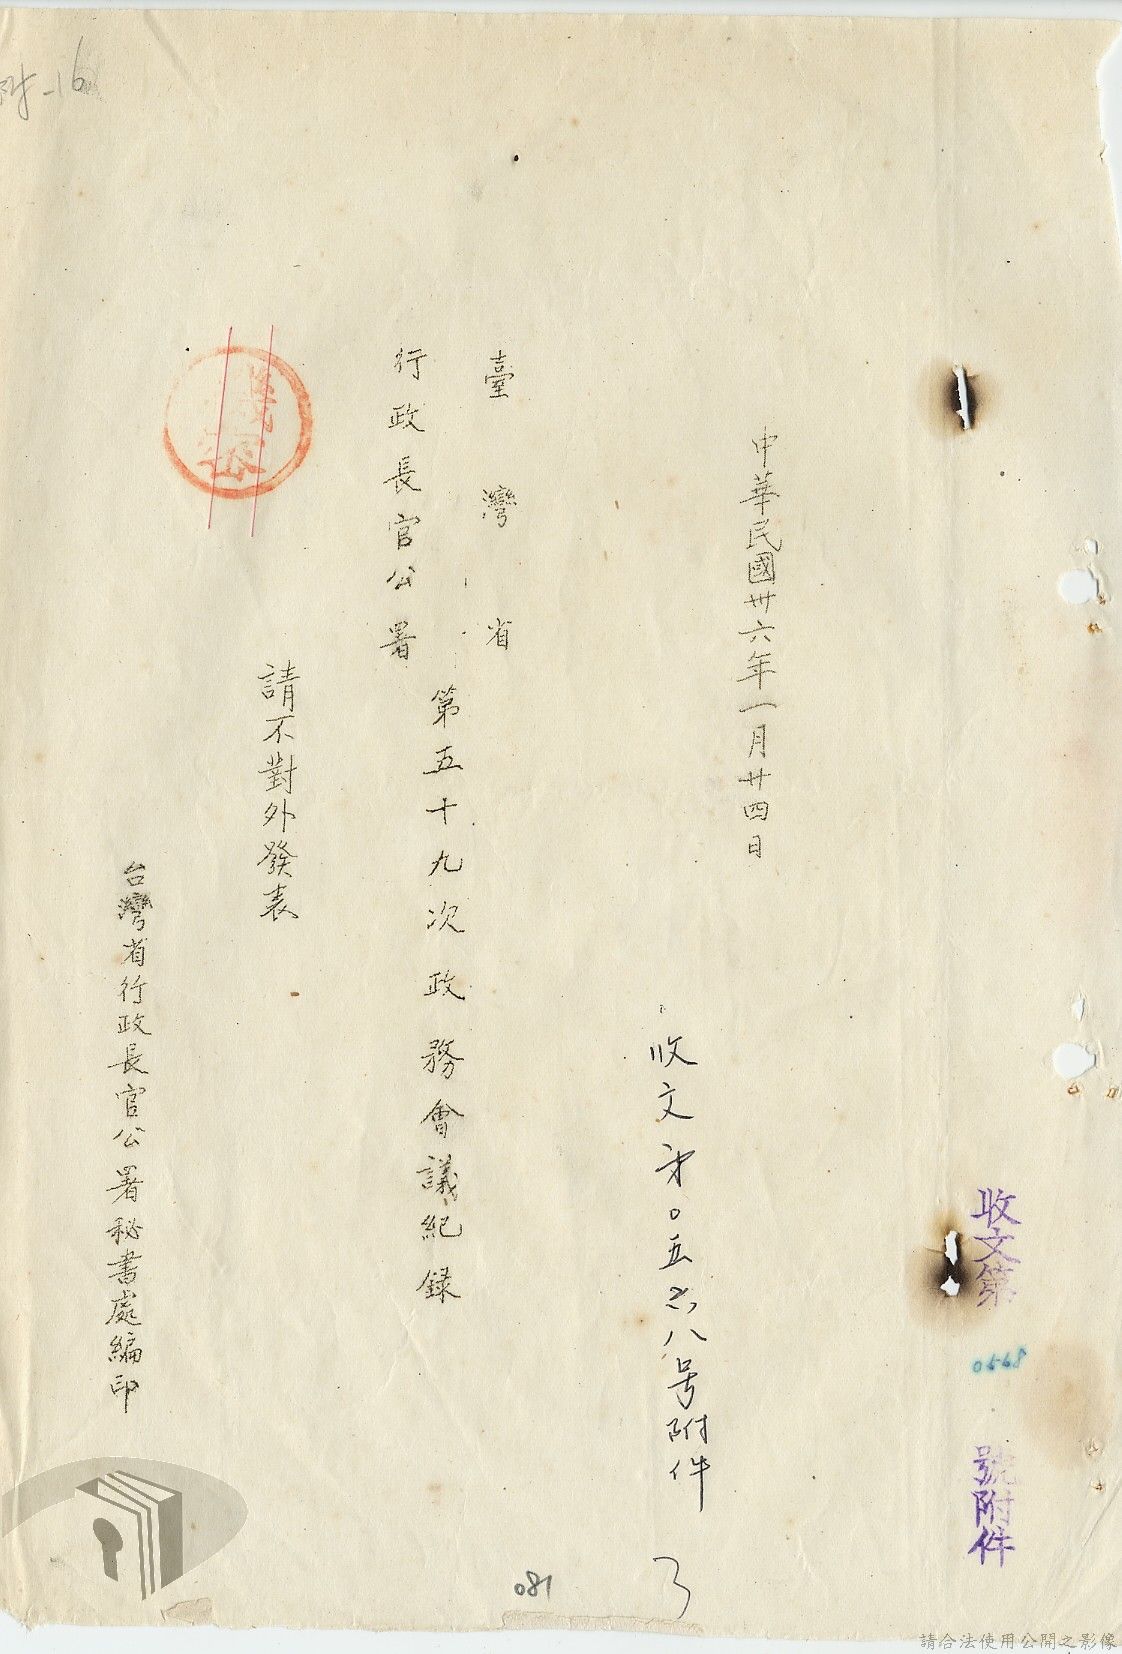 附-16
收文第
0568
號附件
中華民國卅六年一月廿四日
收文第〇五六八号附件
臺灣省
行政長官公署
第五十九次政務會議紀錄
請不對外發表
機密
台灣省行政長官公署秘書處編印
081
3
請合法使用公開之影像